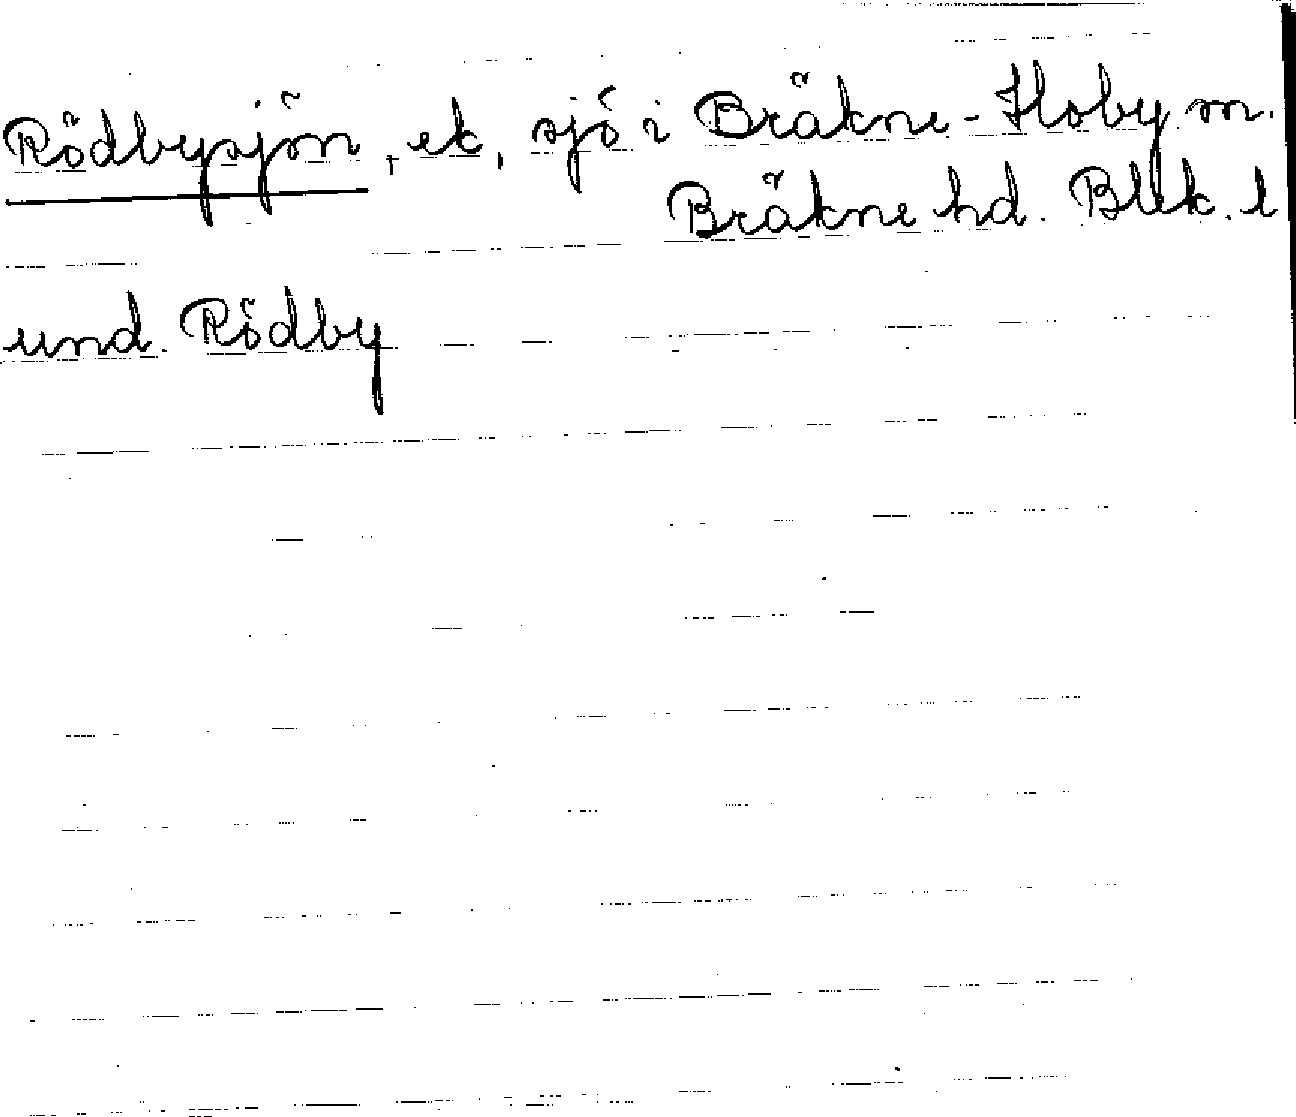 Rödbysjön, ek, sjö i Bräkne-Hoby sn.
Bräkne hd. Blek. l
und. Rödby